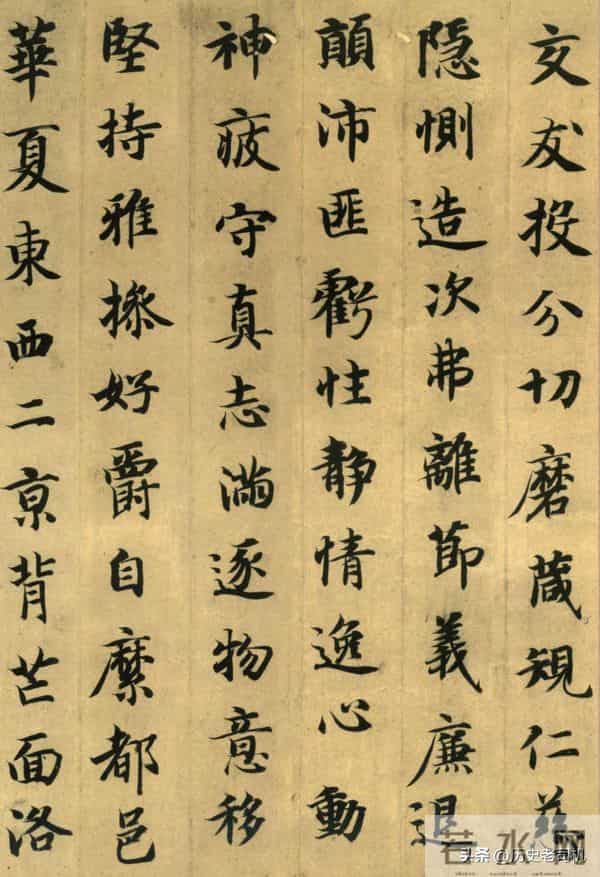 交友投分切磨葴規仁慈
隱惻造次弗離節義廉退
顛沛匪虧性靜情逸心動
神疲守真志滿逐物意移
堅持雅操好爵自縻都邑
華夏東西二京背芒面洛
若水网
头条 @历史老